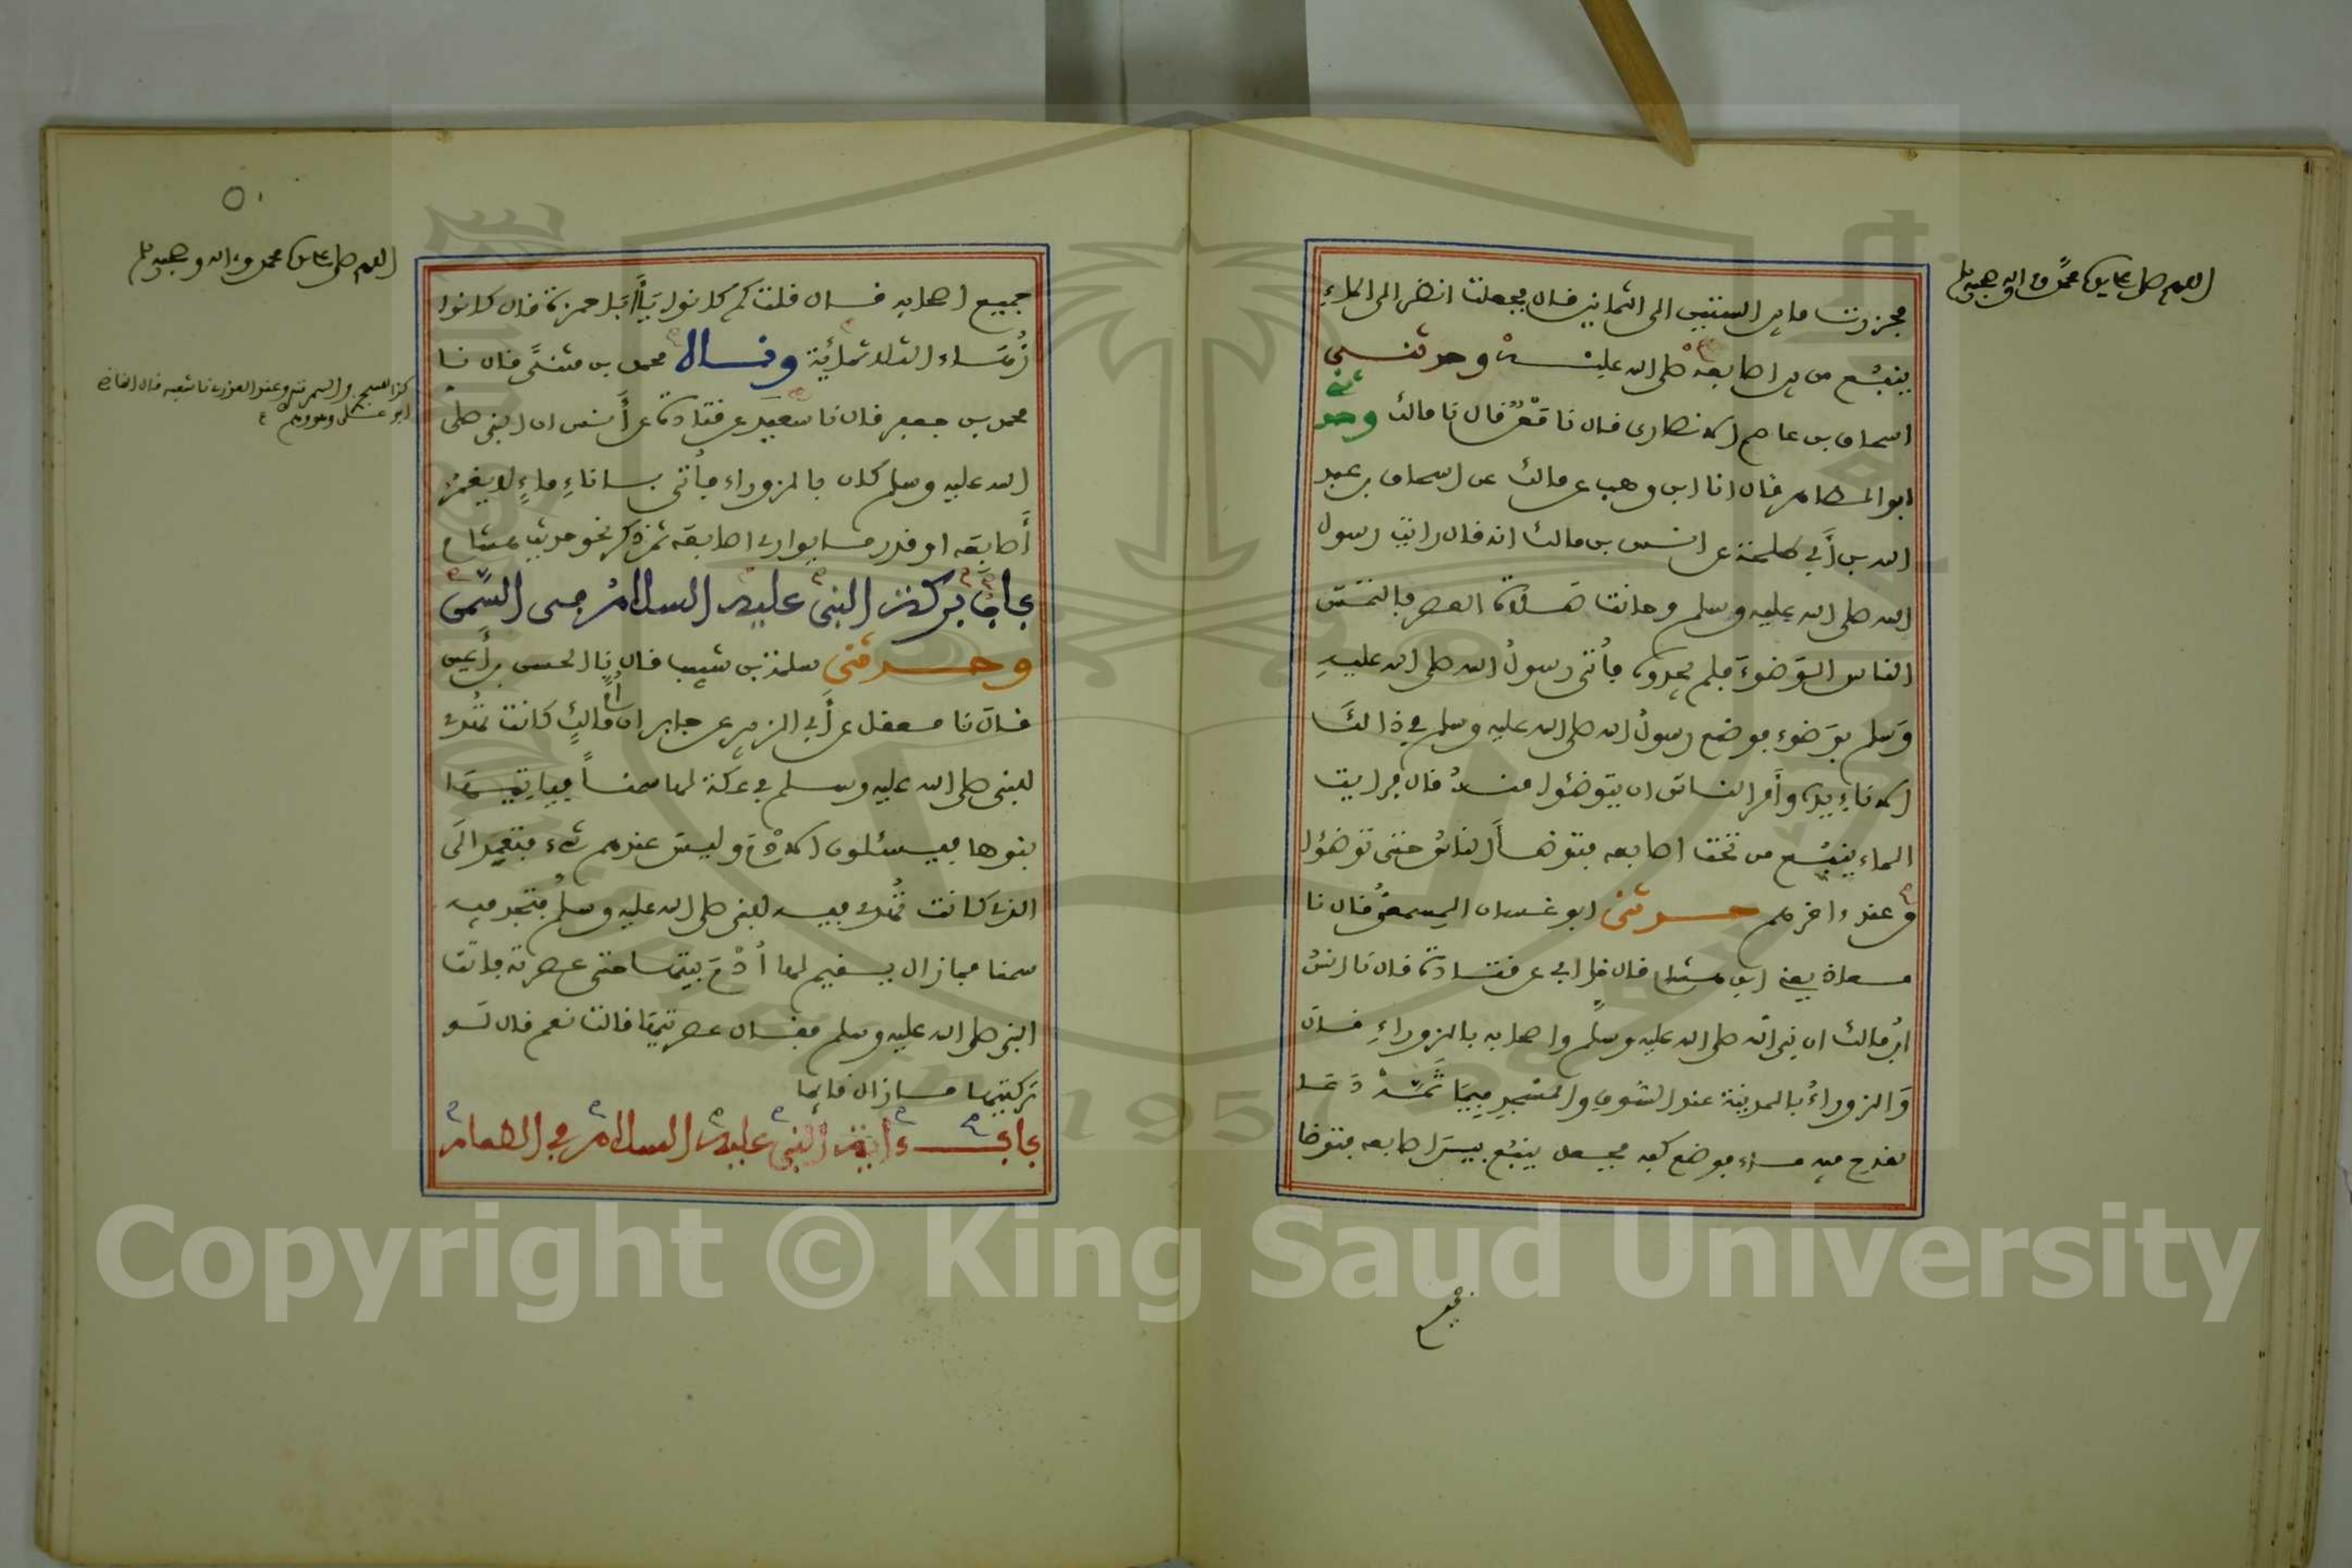 اللهم صل على سيدنا محمد وءاله وصحبه وسلم
فحزرت ما بين الستين الى الثمانين قال فجعلت انظر الى الماء
ينبع من بين اصابعه صلى الله عليه وحدثنى
اسحاق بن موسى الانصارى قال نا معن قال نا مالك وحدثنى
ابو الطاهر قال انا ابن وهب عن مالك عن اسحاق بن عبد
الله بن أبي طلحة عن انس بن مالك انه قال رايت رسول
الله صلى الله عليه وسلم وحانت صلاة العصر فالتمس
الناس الوضوء فلم يجدوه فأتى رسول الله صلى الله عليه
وسلم بوضوء فوضع رسول الله صلى الله عليه وسلم في ذالك
الاناء يده وأمر الناس ان يتوضئوا منه قال فرايت
الماء ينبع من تحت اصابعه فتوضأ الناس حتى توضؤا
من عند ءاخرهم حدثنى ابو غسان المسمعي قال نا
معاذ يعنى ابن هشام قال نا ابي عن قتادة قال نا انس
ابن مالك ان نبي الله صلى الله عليه وسلم واصحابه بالزوراء قال
والزوراء بالمدينة عند السوق والمسجد فيما ثمه دعا
بقدح فيه ماء فوضع كفه فجعل ينبع بين اصابعه فتوضا
جميع
٥٠
اللهم صل على سيدنا محمد وءاله وصحبه وسلم
جميع اصحابه قال قلت كم كانوا يا أبا حمزة قال كانوا
زهاء الثلاثمائة وقال محمد بن مثنى قال نا
محمد بن جعفر قال نا سعيد عن قتادة عن أنس ان النبي صلى
الله عليه وسلم كان بالزوراء فأتى باناء ماء لا يغمر
أصابعه او قدر ما يوارى اصابعه ثم ذكر نحو حديث هشام
باب بركة النبي عليه السلام في السمن
وحدثنى سلمة بن شبيب قال نا الحسن بن أعين
قال نا معقل عن أبي الزبير عن جابر ان أم مالك كانت تهدى
للنبي صلى الله عليه وسلم في عكة لها سمنا فياتيها
بنوها فيسئلون الادم وليس عندهم شيء فتعمد الى
الذى كانت تهدى فيه للنبي صلى الله عليه وسلم فتجد فيه
سمنا فما زال يقيم لها أدم بيتها حتى عصرته فاتت
النبي صلى الله عليه وسلم فقال عصرتيها قالت نعم قال لو
تركتيها ما زال قائما
باب ءاية النبي عليه السلام في الطعام
Copyright © King Saud University
1957